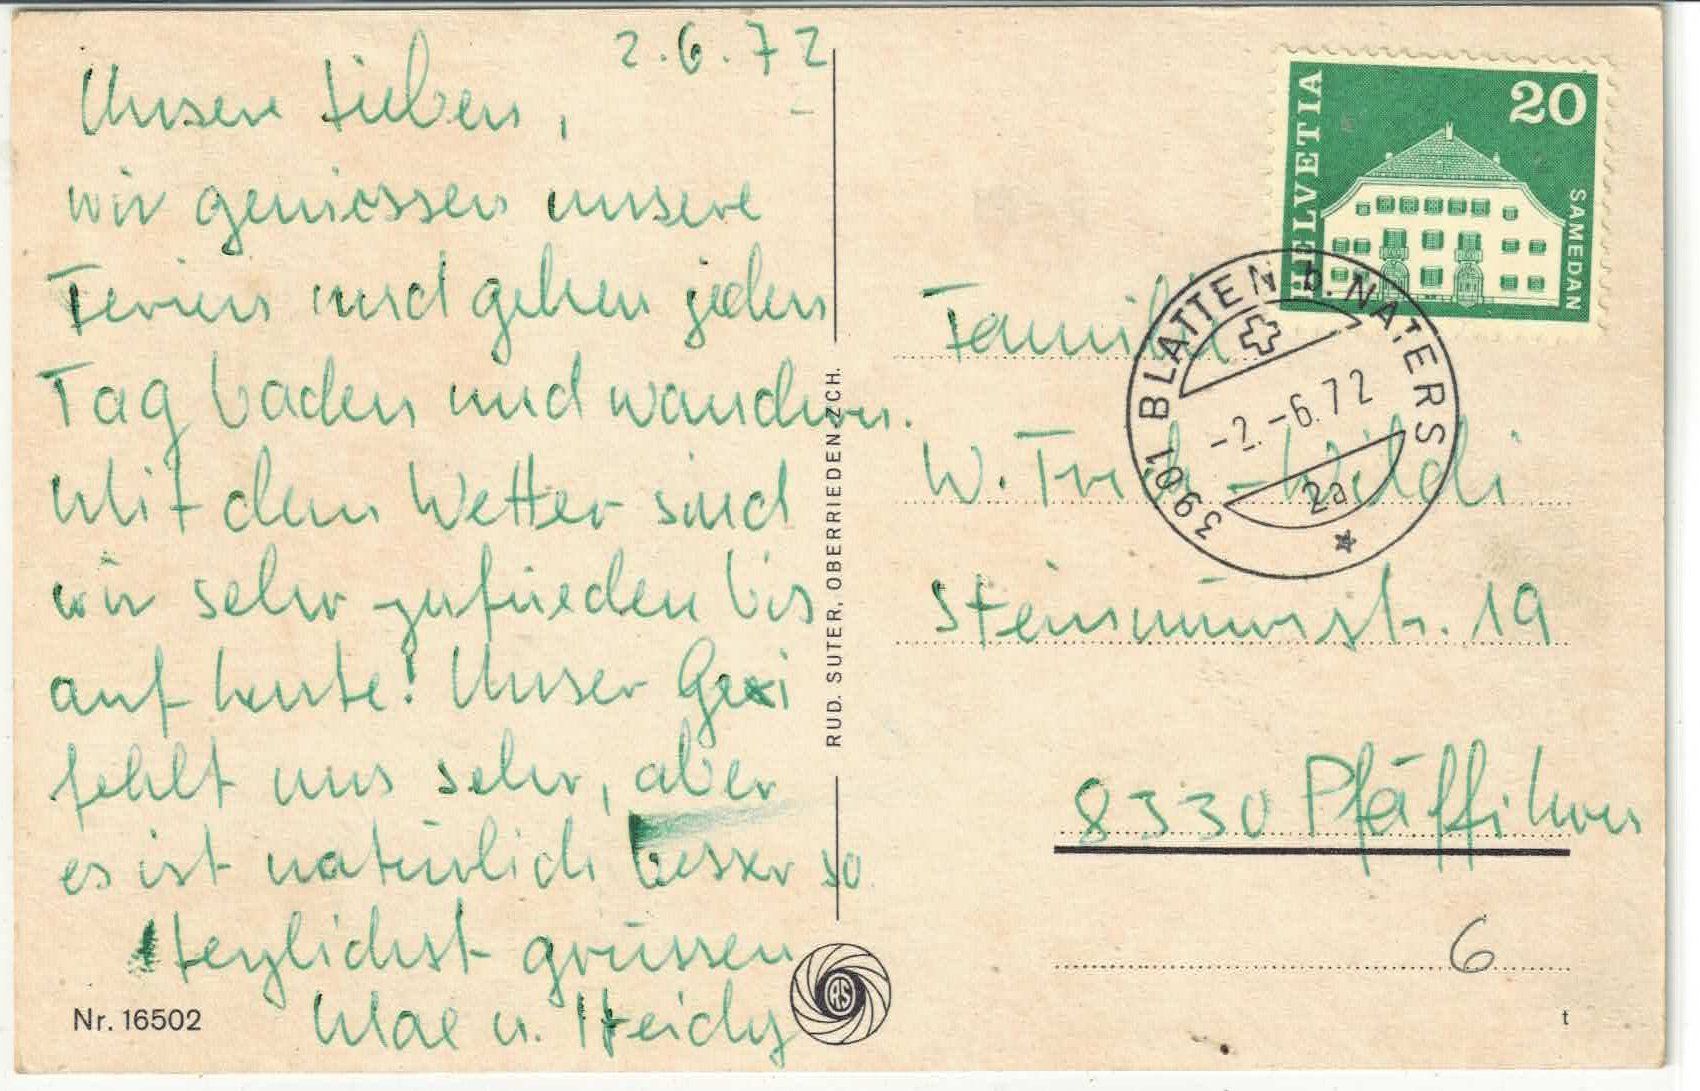 2.6.72
Unsere Lieben,
wir geniessen unsere
Ferien und gehen jeden
Tag baden und wandern.
Mit dem Wetter sind
wir sehr zufrieden bis
auf heute! Unser Gexi
fehlt uns sehr, aber
es ist natürlich besser so
Herzlichst grüssen
u. Heidy
Nr. 16502
RUD. SUTER, OBERRIEDEN-ZCH.
RS
HELVETIA
20
SAMEDAN
3901 BLATTEN b. NATERS
-2.-6.72
2a
Familie
W. -Wildi
Steinmürristr. 19
8330 Pfäffikon
6
t